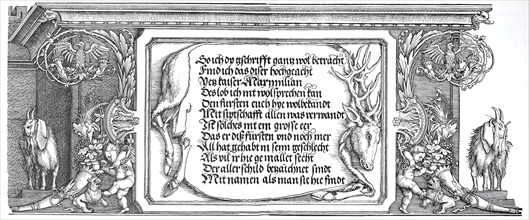 So ich dy gschrifft gantz wol betracht
Find ich das diser hochgeacht
Vex kaiser Maxymilian
Des lob ich nit volsprechen kan
Den fürsten euch hye wolbekandt
Mit siptschafft allen was verwandt
Ist solches nit ein grosse eer
Das er diß fürsten vnd noch mer
All hat gehabt in seim geschlecht
Als vil ir hie gemallet secht
Der aller schild bezaichnet sindt
Mit namen als man sit hie findt